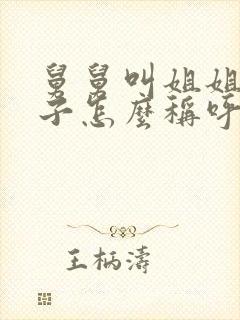 舅舅叫姐姐
子怎麼稱呼
王柄濤